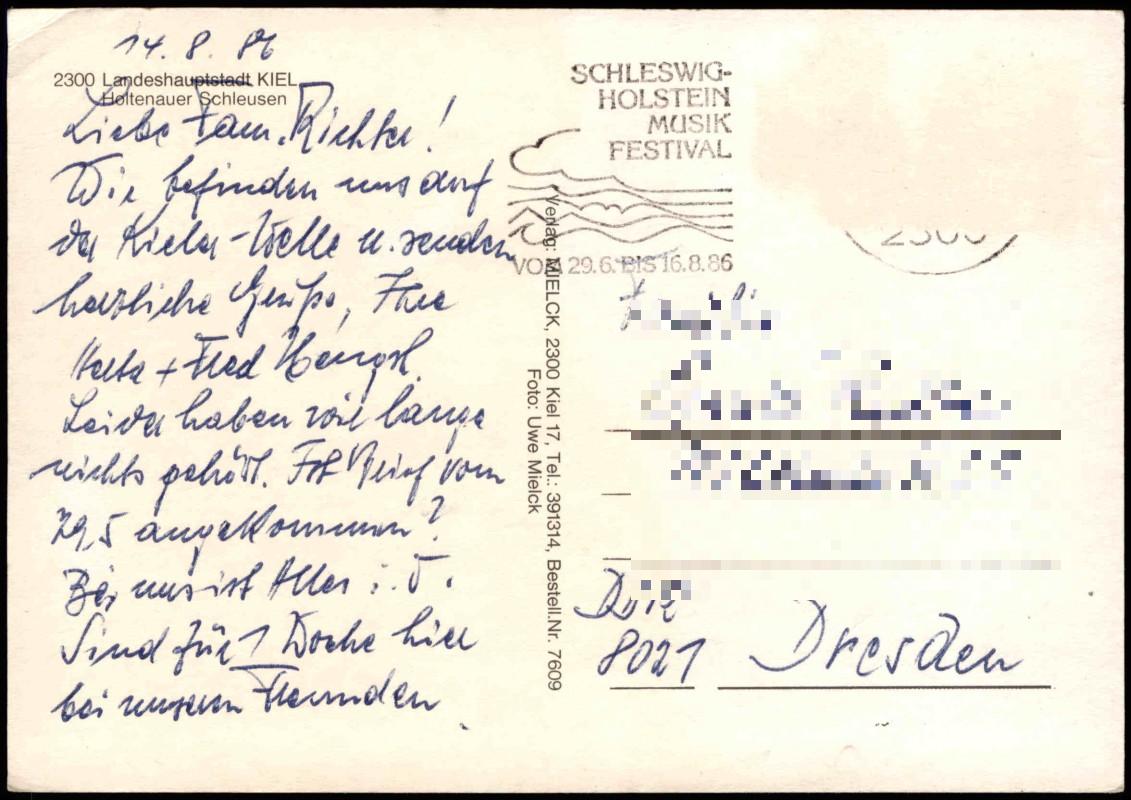 14. 8. 86
2300 Landeshauptstadt KIEL
Holtenauer Schleusen
Liebe Fam. Richter!
Wir befinden uns auf
der Kieler-Welle u. senden
herzliche Grüße, Ihre
+ Fred
Leider haben wir lange
nichts gehört. Ist Brief vom
29,5 angekommen?
Bei uns ist Alles i. O.
Sind für 1 Woche hier
bei unseren Freunden
SCHLESWIG-
HOLSTEIN
MUSIK
FESTIVAL
VOM 29.6. BIS 16.8.86
2300
Verlag: MIELCK, 2300 Kiel 17, Tel.: 391314, Bestell.Nr. 7609
Foto: Uwe Mielck
8021 Dresden